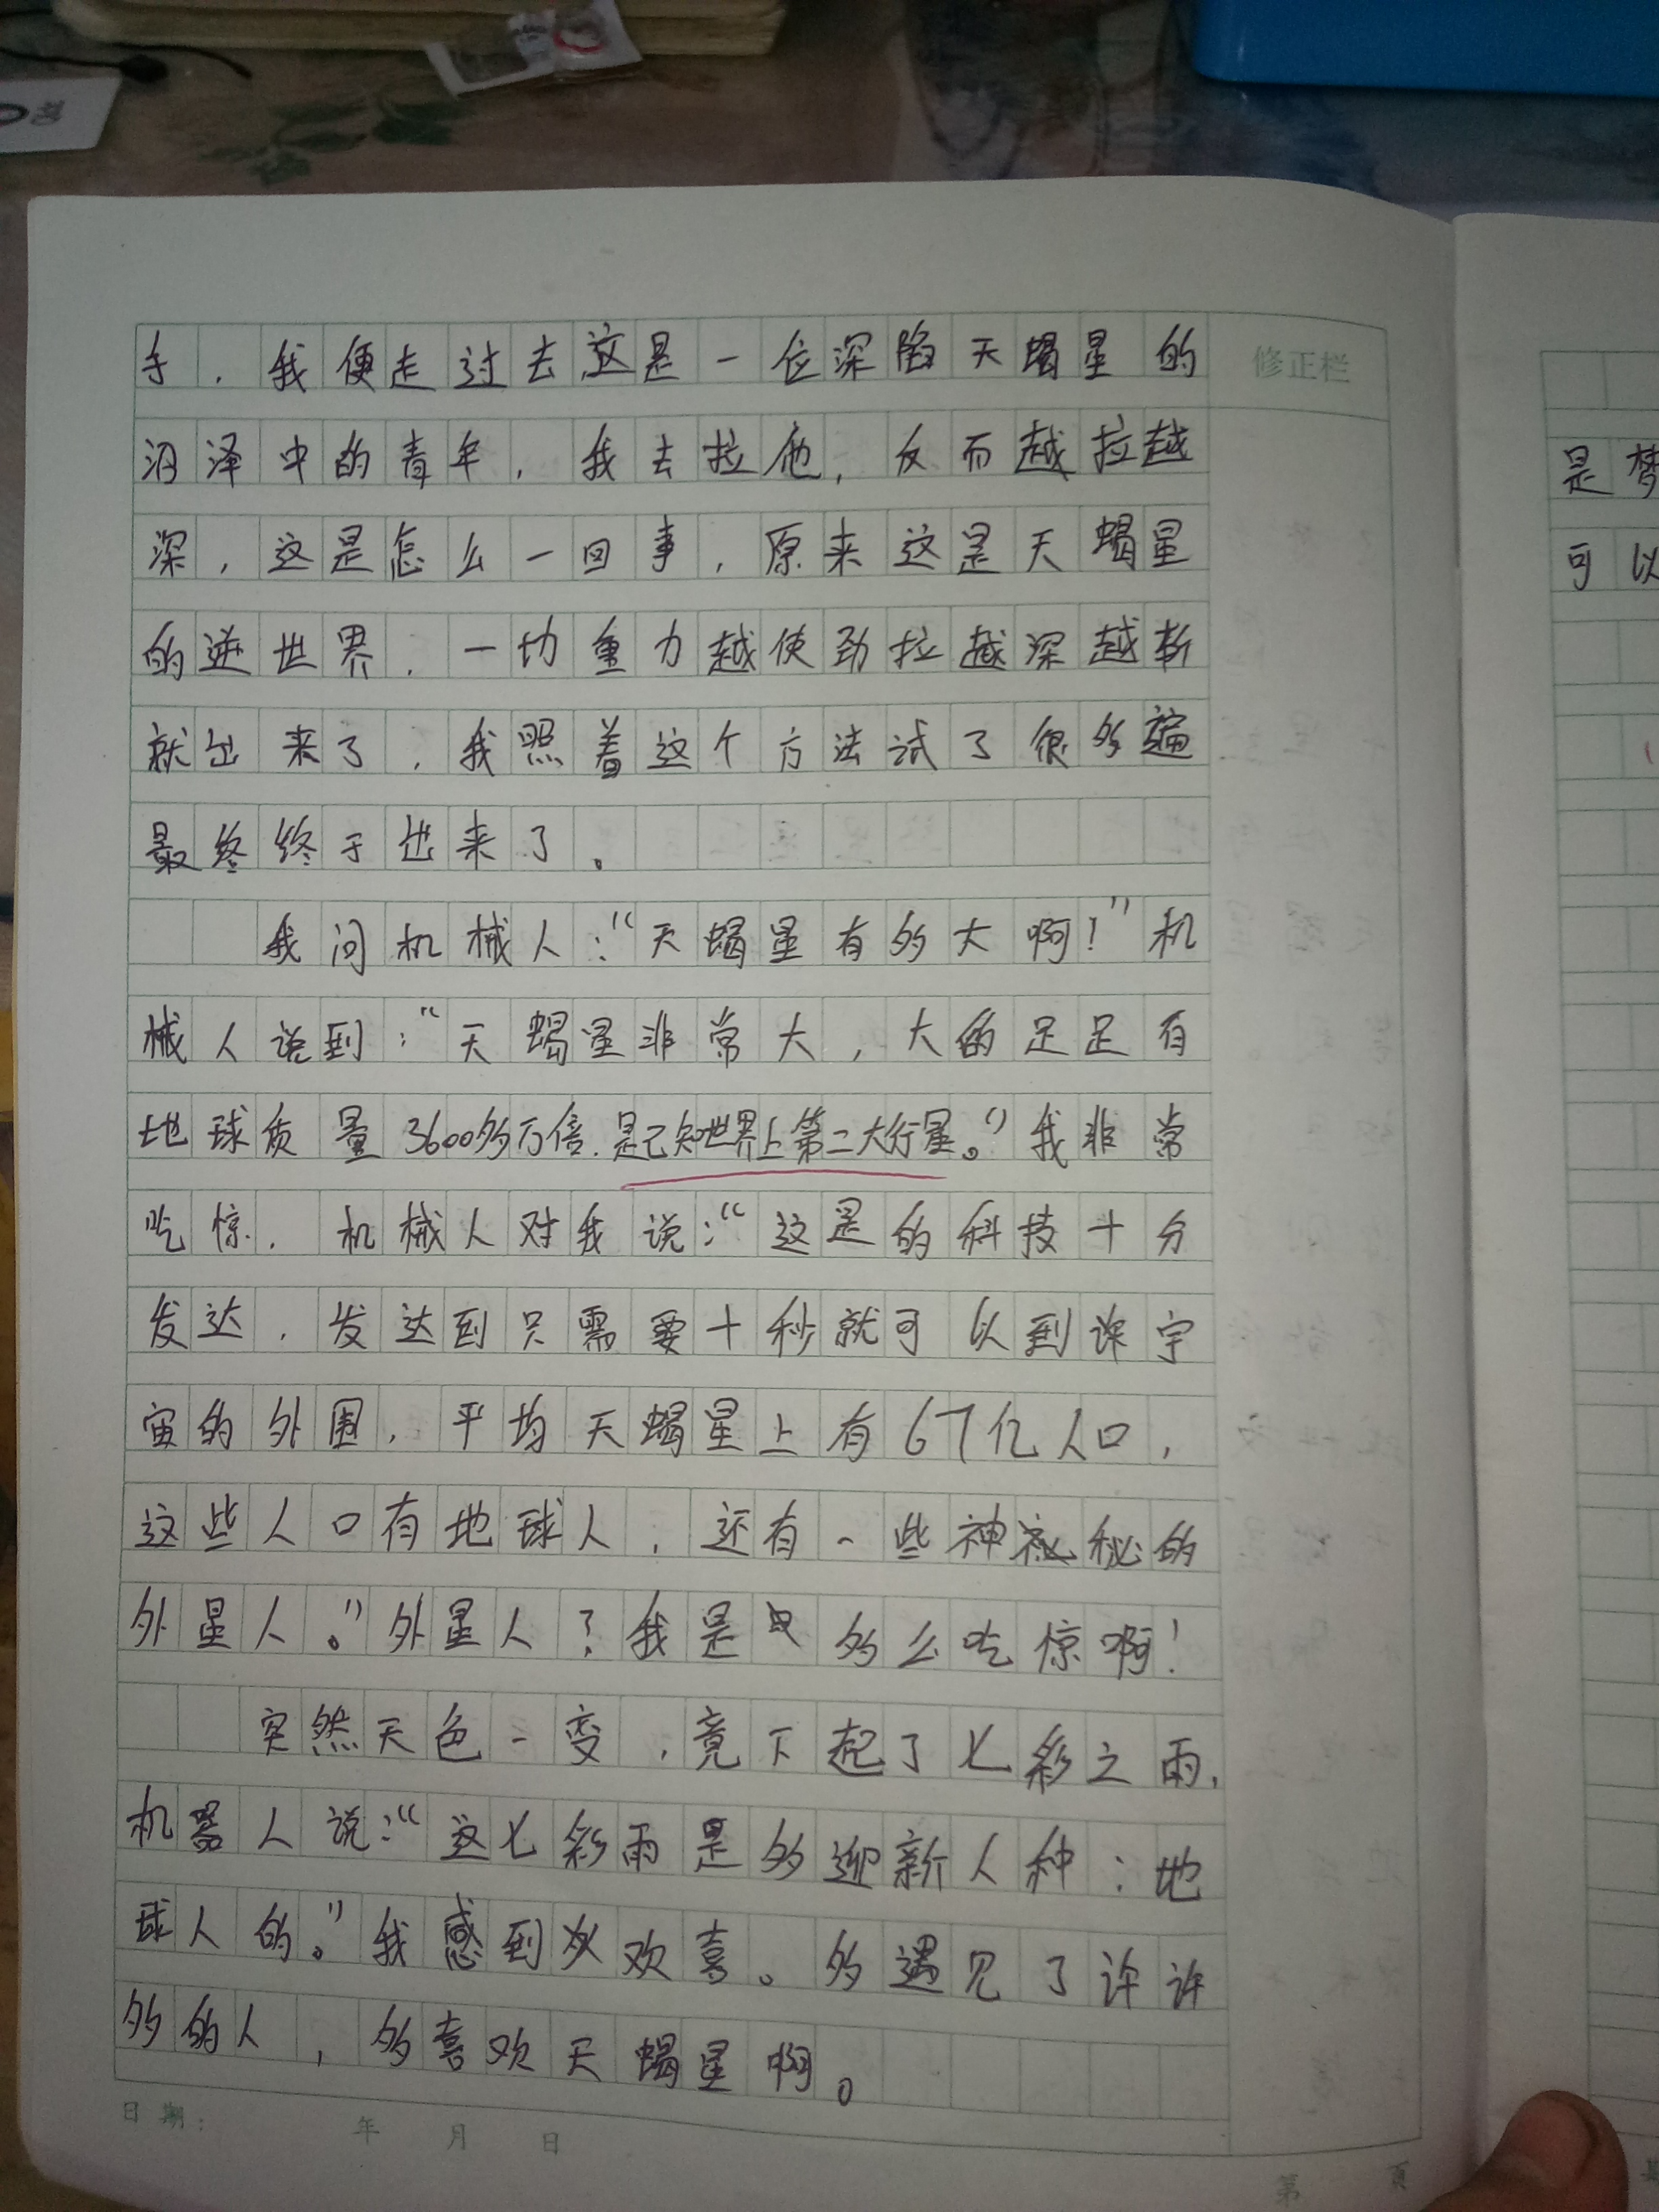 手，我便走过去这是一位深陷天蝎星的
沼泽中的青年，我去拉他，反而越拉越
深，这是怎么一回事，原来这是天蝎星
的逆世界，一切重力越使劲拉越深越斩
就出来了，我照着这个方法试了很多遍
最终终于出来了。
我问机械人：“天蝎星有多大啊！”机
械人说到：“天蝎星非常大，大的足足有
地球质量3600多万倍，是已知世界上第二大行星。”我非常
吃惊，机械人对我说：“这是的科技十分
发达，发达到只需要十秒就可以到许宇
宙的外围，平均天蝎星上有67亿人口，
这些人口有地球人，还有一些神秘的
外星人。”外星人？我是多么吃惊啊！
突然天色一变，竟下起了七彩之雨，
机器人说：“这七彩雨是多迎新人种：地
球人的。”我感到欢喜。多遇见了许许
多的人，多喜欢天蝎星啊。
修正栏
日期： 年 月 日
第 页
是梦
可以